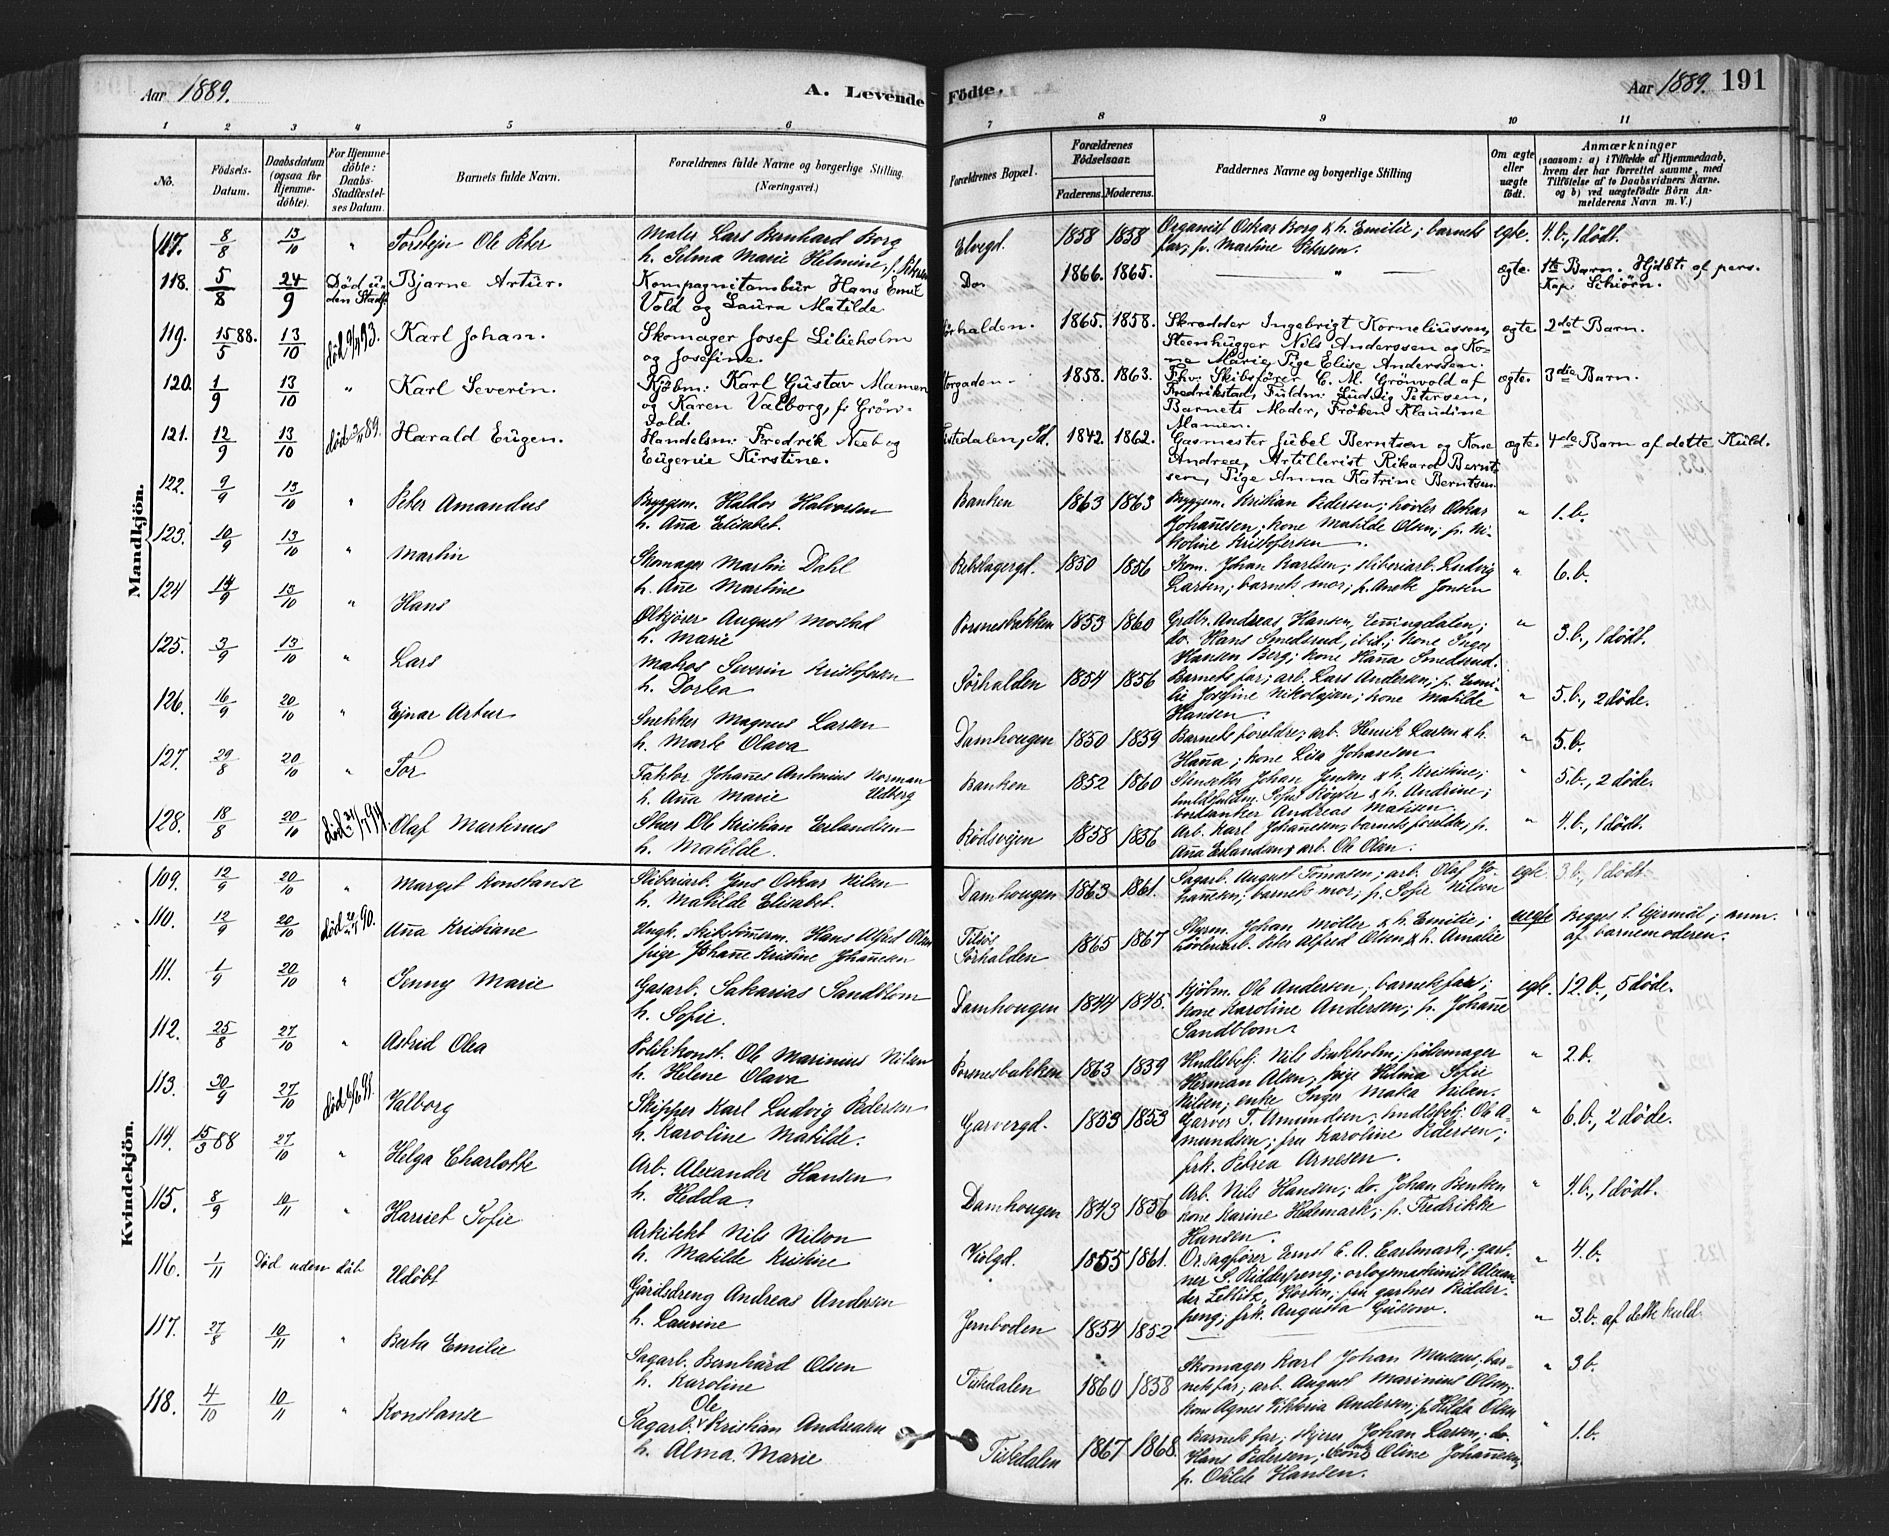 Aar 1889.
A. Levende Födte.
Aar 1889. 191
1 2 3 4 5 6 7 8 9 10 11
No.
Födsels-Datum.
Daabsdatum (ogsaa for Hjemme-döbte).
For Hjemme-döbte: Daabs-Stadfæstel-ses Datum.
Barnets fulde Navn.
Forældrenes fulde Navne og borgerlige Stilling. (Næringsvei.)
Forældrenes Bopæl.
Forældrenes Födselsaar.
Faderens. Moderens.
Faddernes Navne og borgerlige Stilling
Om ægte eller uægte födt.
Anmærkninger (saasom: a) i Tilfælde af Hjemmedaab, hvem der har forrettet samme, med Tilföielse af to Daabsvidners Navne. og b) ved uægtefödte Börn An-melderens Navn m. V.)
Mandkjön.
117. 8/8 13/10 " Torstejn Ole Peter
Maler Lars Bernhard Borg
h. Selma Marie Helmine,
Elvegd. 1858 1858 Organist Oskar Borg & h. Emilie; barnets
far; p. Martine Petersen. egte. 4. b., 1 dödt.
118. 5/8 24/9 Död u-den Stadf. Bjarne Artur.
Kompagnitambur Hans Emil
Vold og Laura Matilde
Do. 1866. 1865. " ægte. 1ste Barn. Hjdöbt af pers.
Kap. Schiörn.
119. 15/5 88. 13/10 död 9/4 93. Karl Johan.
Skomager Josef Lilieholm
og Josefine.
Sørhalden. 1865. 1858. Skrædder Ingebrigt Korneliussen,
Steenhugger Nils Anderssen og Ko-
ne Marie, Pige Elise Anderssen. ægte 2det Barn.
120. 1/9 13/10 " Karl Severin.
Kjöbm: Karl Gustav Mamen
og Karen Valborg, f. Grön-
vold.
Storgaden. 1858. 1863. Fhv. Skibsförer C. M. Grönvold af
Fredrikstad, Fuldm: Ludvig Petersen,
Barnets Moder, Fröken Klaudine
Mamen. ægte. 3die Barn.
121. 12/9 13/10 Harald Eugen.
Handelsm: Fredrik Neeb og
Eugenie Kirstine.
Tistedalen, Id. 1842. 1862. Gasmester Jubel Berntsen og Kone
Andrea, Artillerist Rikard Bernt-
sen, Pige Anna Katrine Berntsen. ægte. 4de Barn af dette Kuld.
122. 9/9 13/10 " Peter Amandus
Byggm. Haldor Halvorsen
h. Aña Elisabet.
Banken 1863 1863 Byggm. Kristian Pedersen; hövler Oskar
Johañesen; kone Matilde Olsen; p. Ni-
koline Kristofersen " 1. b.
123. 10/9 13/10 " Martin
Skomager Martin Dahl
h. Añe Martine
Rebslagergd. 1850 1856 Skom. Johan Karlsen; sliberiarb. Ludvig
Larsen; barnets mor; p. Anette Jonsen " 6. b.
124 14/9 13/10 " Hans
Ølkjörer August Mostad
h. Marie
Porsnesbakken 1853 1860 Grdbr. Andreas Hansen, Eñingdalen;
do. Hans Smedsrud, ibid.; kone Inger
Hansen Berg; kone Haña Smedsrud. " 3. b., 1 dödt.
125. 3/9 13/10 " Lars
Matros Severin Kristofersen
h. Dortea
Sörhalden 1854 1856 Barnets far; arb. Lars Andersen; p. Emi-
lie Josefine Nikolajsen; kone Matilde
Hansen " 5. b., 2 döde.
126. 16/9 20/10 " Ejnar Artur
Snekker Magnus Larsen
h. Marte Olava
Damhougen 1850 1859 Barnets foreldre; arb. Henrik Larsen & h.
Haña; kone Lisa Johansen " 5. b.
127. 29/8 20/10 " Tor
Faktor Johañes Antonius Norman
h. Aña Marie Udberg
Banken 1852 1860 Johan Jensen & h. Kristine;
& h. Andrine;
Andreas Matisen. " 5. b., 2 döde.
128. 18/8 20/10 Olaf Marknus
Skrær Ole Kristian Erlandsen
h. Matilde.
Rödsvejen 1858 1856 Arb. Karl Johañesen, barnets foreldre, p.
Aña Erlandsen & arb. Ole Olsen. " 4. b., 1 dödt.
Kvindekjön.
109. 12/9 20/10 " Margit Konstanse
Sliberiarb. Jens Oskar Nilsen
h. Matilde Elisabet.
Damhougen 1863 1861. Sagarb. August Tomasen; arb. Olaf Jo-
hañesen; barnets mor; p. Sofie Nilsen egte 3. b., 1 dödt.
110. 12/9 20/10 Aña Kristiane
Ungk. Hans Alfred Olsen
pige Johañe Kristine Johañesen
Sörhalden 1865 1867 Styrm. Johan Möller & h. Emilie;
Peter Alfred Olsen & h. Amalie uegte Begges 1. lejermål; anm.
af barnemoderen.
111. 1/9 20/10 " Jenny Marie
Gasarb. Sakarias Sandblom
h. Sofie.
Damhougen 1844 1845. Kjöbm. Ole Andersen; barnets far;
kone Karoline Andersen; p. Johañe
Sandblom. egte. 12. b., 5 döde.
112. 25/8 27/10 " Astrid Olea
Politikonst. Ole Marinius Nilsen
h. Helene Olava
Porsnesbakken 1863 1859 Hndlsbetj. Nils Bakholm; pölsemager
Herman Olsen; pige Helma Sofie
Nilsen; enke Inger Nilsen. " 2. b.
113. 30/9 27/10 död 6/6 91. Valborg
Skipper Karl Ludvig Pedersen
h. Karoline Matilde.
Garvergd. 1853 1853 Garver T. Amundsen; hndlsbetj. Ole A-
mundsen; fru Karoline Pedersen;
frk. Petrea Arnesen. " 6. b., 2 döde.
114. 15/3 88 27/10 " Helga Charlotte
Arb. Alexander Hansen
h. Hedda.
Damhougen 1843 1856 Arb. Nils Hansen; do. Johan Benken
kone Karine Hedemark; p. Fredrikke
Hansen. " 4. b., 1 dödt.
115. 8/9 10/11 " Harriet Sofie
Arkitekt Nils Nilson
h. Matilde Kristine
Violgd. 1855 1861. Or.sagförer Ernst C. A. Carlmark; gart-
ner S. Ridderspeng; orlogsmaskinist Alexan-
der Horten; fru gartner Ridder-
speng; frk. Augusta Gussow. " 4. b.
116. 1/11 Död uden dåb Udöbt
Gårdsdreng Andreas Andersen
h. Laurine
Jernboden 1854 1852 " 3. b. af dette kuld
117. 27/8 10/11 " Berta Emilie
Sagarb. Bernhard Olsen
h. Karoline
Tistedalen 1860 1858 Skomager Karl Johan Musaus; bar-
nets far; arb. August Marinius Olsen;
kone Agnes Viktoria Andersen; p. Hilda Olsen " 3 b.
118. 4/10 10/11 " Konstanse
Sagarb. Ole Kristian Andreasen
h. Alma Marie
Tistedalen 1867 1868. Barnets far; skjerer Johan Larsen; do.
Hans Pedersen; kone Oline Johañesen;
p. Otilde Hansen. " 1. b.